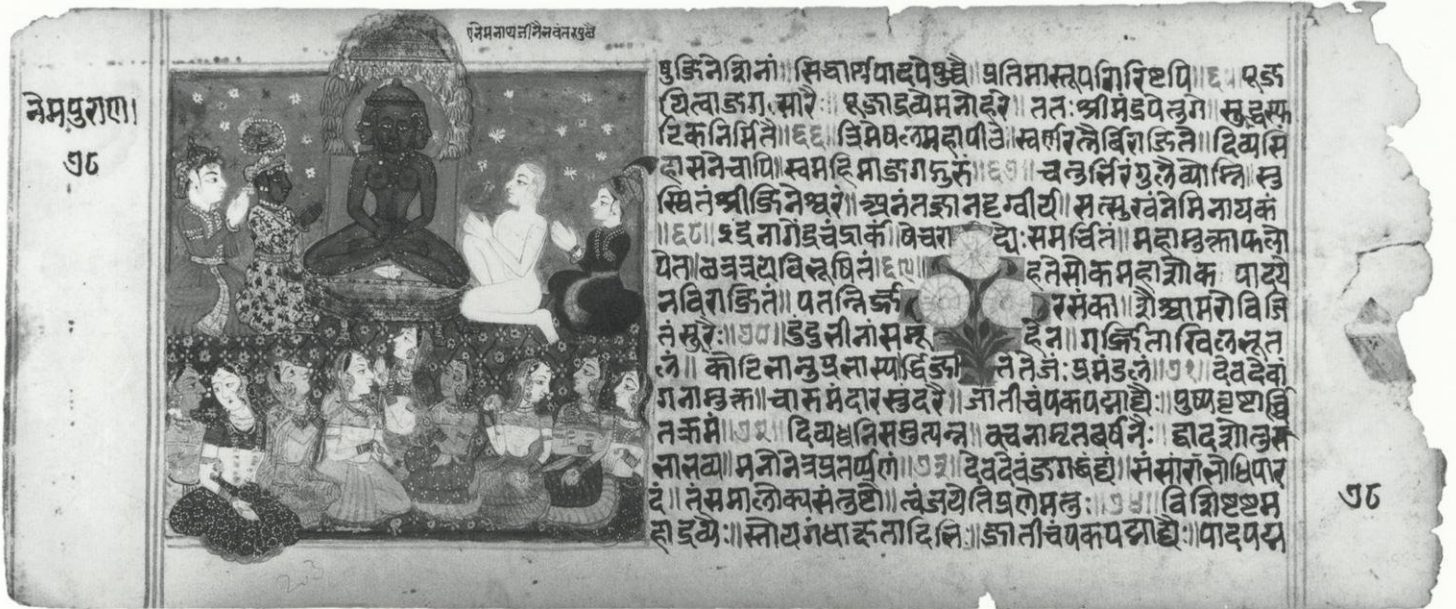 नेमपुराण।
७८
पुजिनेशिनां॥सिद्धार्त्थपादपेषुच्चैः॥प्रतिमास्तूपगिरिष्टपि॥६५॥पूज
यित्वाजगत्सारैः॥पूजाद्रव्येमनोहरै॥ततःश्रीमंडपेत्तुंग॥स्तुद्धस्फ
टिकनिर्मितै॥६६॥त्रिमेषलामहापीठे॥स्वर्णरत्नैर्विराजितै॥दिव्यसि
हासनेचापि॥स्वमहिमाजगद्गुरुं॥६७॥चतुर्भिरंगुलैर्व्योम्नि॥सु
स्थितंश्रीजिनेश्वरं॥अनंतज्ञानदृग्वीर्य॥सत्सुखंनेमिनायकं
॥६८॥इंद्रनागेंद्रचंद्रार्क॥षेचरा द्यैःसमर्चितं॥महामुक्ताफलो
पेत॥छत्रत्रयविभूषितं॥६९॥ हतेसोकमहाशोक पादपे
नविराजितं॥ तंसुरैः॥७०॥दुंदुभीनांसमू हेन॥गर्जिताखिलभूत
लं॥ कोटिभानुप्रभास्पर्द्धि ततेजःप्रमंडलं॥७१॥देवदेवां
गनामुक्त॥चारुमंदारसुंदरै॥जातीचंपकपद्माद्यैः॥पुष्पवृष्टार्च्चि
तक्रमं॥७२॥दिव्यध्वनिसमुत्पन्न॥वचनामृतवर्षनैः॥द्वादशोरुस
भाभव्य॥मनोनेत्रप्रतर्प्पणं॥७३॥देवदेवंजगद्वंद्यं॥संसारांभोधिपार
दं॥तंसमालोक्यसंतुष्टो॥त्वंजयेतिप्रणेमतुः॥७४॥विशिष्टष्टम
हाद्रव्यैः॥स्तोयगंधाक्षतादिभिः॥जातीचंपकपद्माद्यैः॥पादपद्म
७८